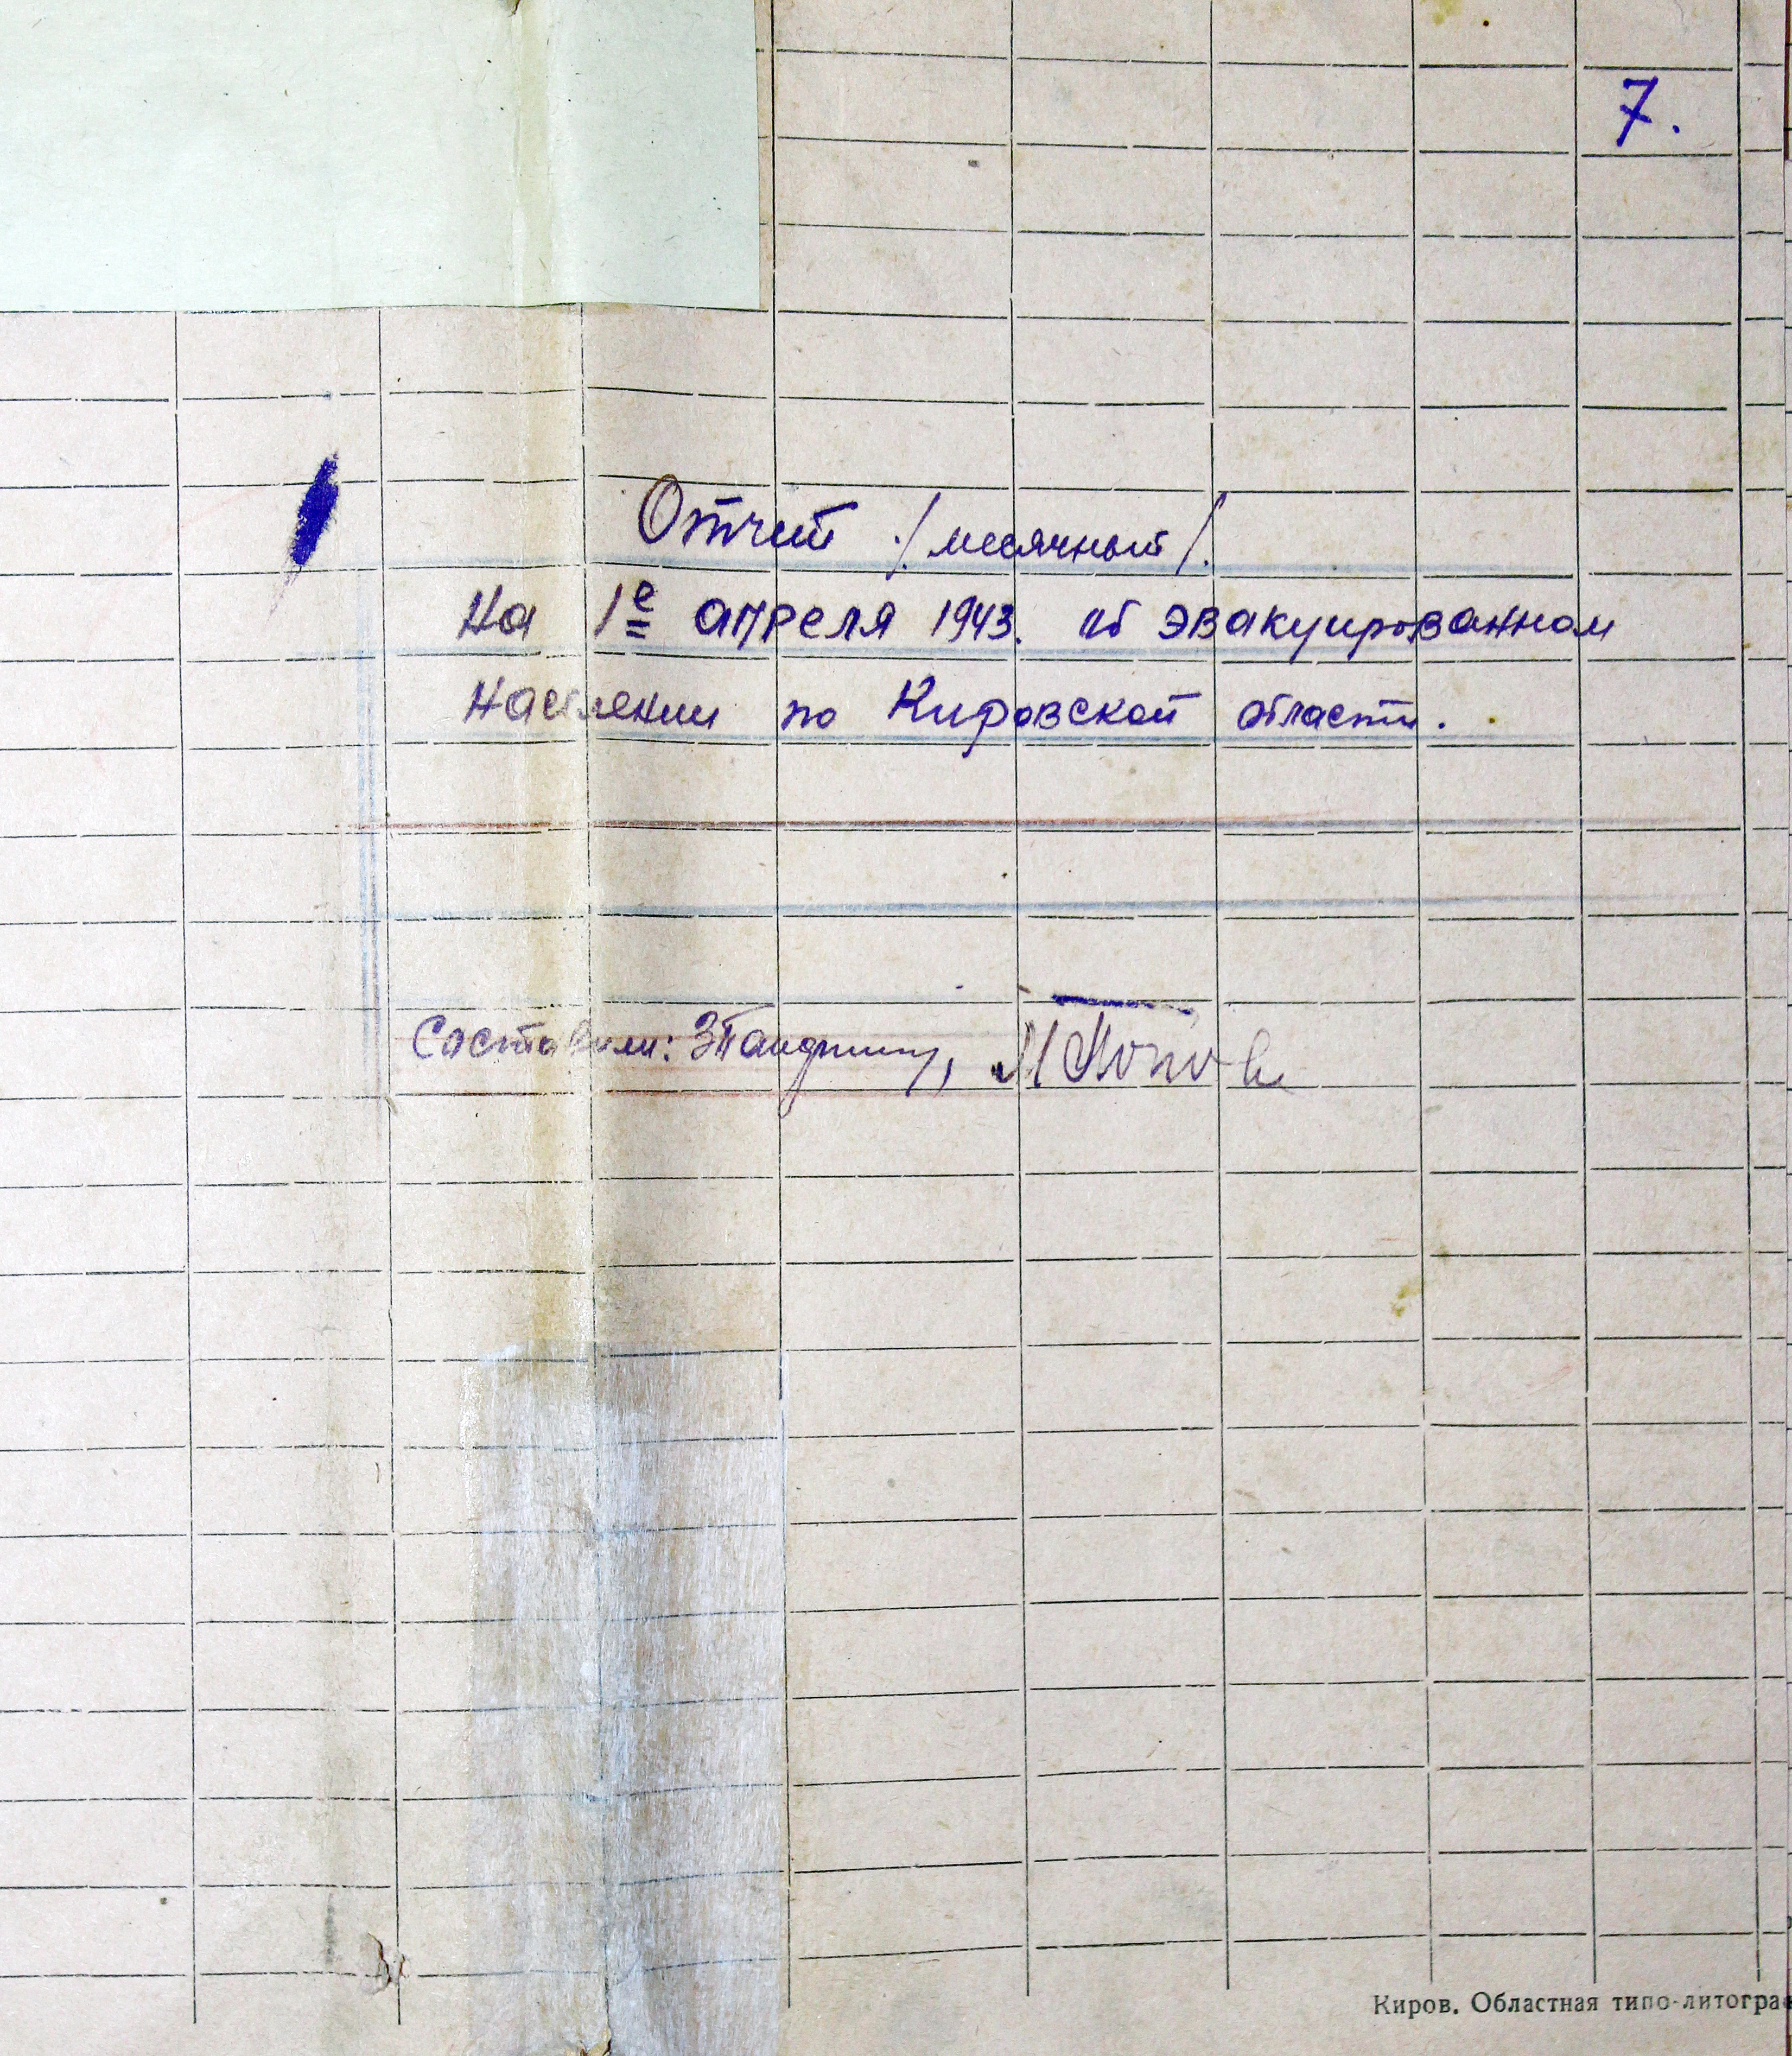 7.
Отчет /месячный/.
На 1е апреля 1943. об эвакуированном
населении по Кировской области.
Составили:
Киров. Областная типо-литограф